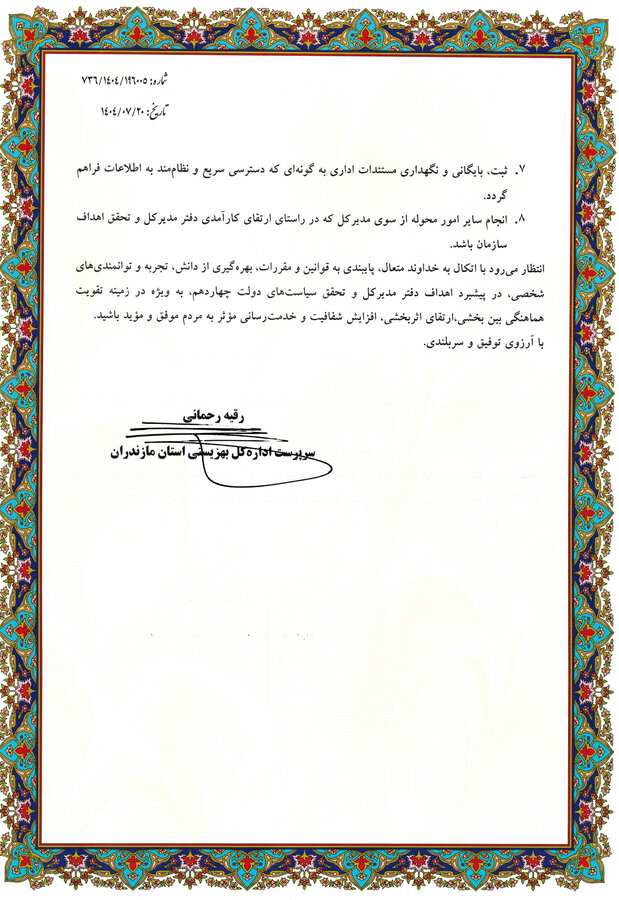 شماره: ۷۳۶/۱۴۰۴/۱۹۶۰۰۵
تاریخ: ۱۴۰۴/۰۷/۲۰
۷. ثبت، بایگانی و نگهداری مستندات اداری به گونه‌ای که دسترسی سریع و نظام‌مند به اطلاعات فراهم
گردد.
۸. انجام سایر امور محوله از سوی مدیرکل که در راستای ارتقای کارآمدی دفتر مدیرکل و تحقق اهداف
سازمان باشد.
انتظار می‌رود با اتکال به خداوند متعال، پایبندی به قوانین و مقررات، بهره‌گیری از دانش، تجربه و توانمندی‌های
شخصی، در پیشبرد اهداف دفتر مدیرکل و تحقق سیاست‌های دولت چهاردهم، به ویژه در زمینه تقویت
هماهنگی بین بخشی،ارتقای اثربخشی، افزایش شفافیت و خدمت‌رسانی مؤثر به مردم موفق و مؤید باشید.
با آرزوی توفیق و سربلندی.
رقیه رحمانی
سرپرست اداره‌کل بهزیستی استان مازندران